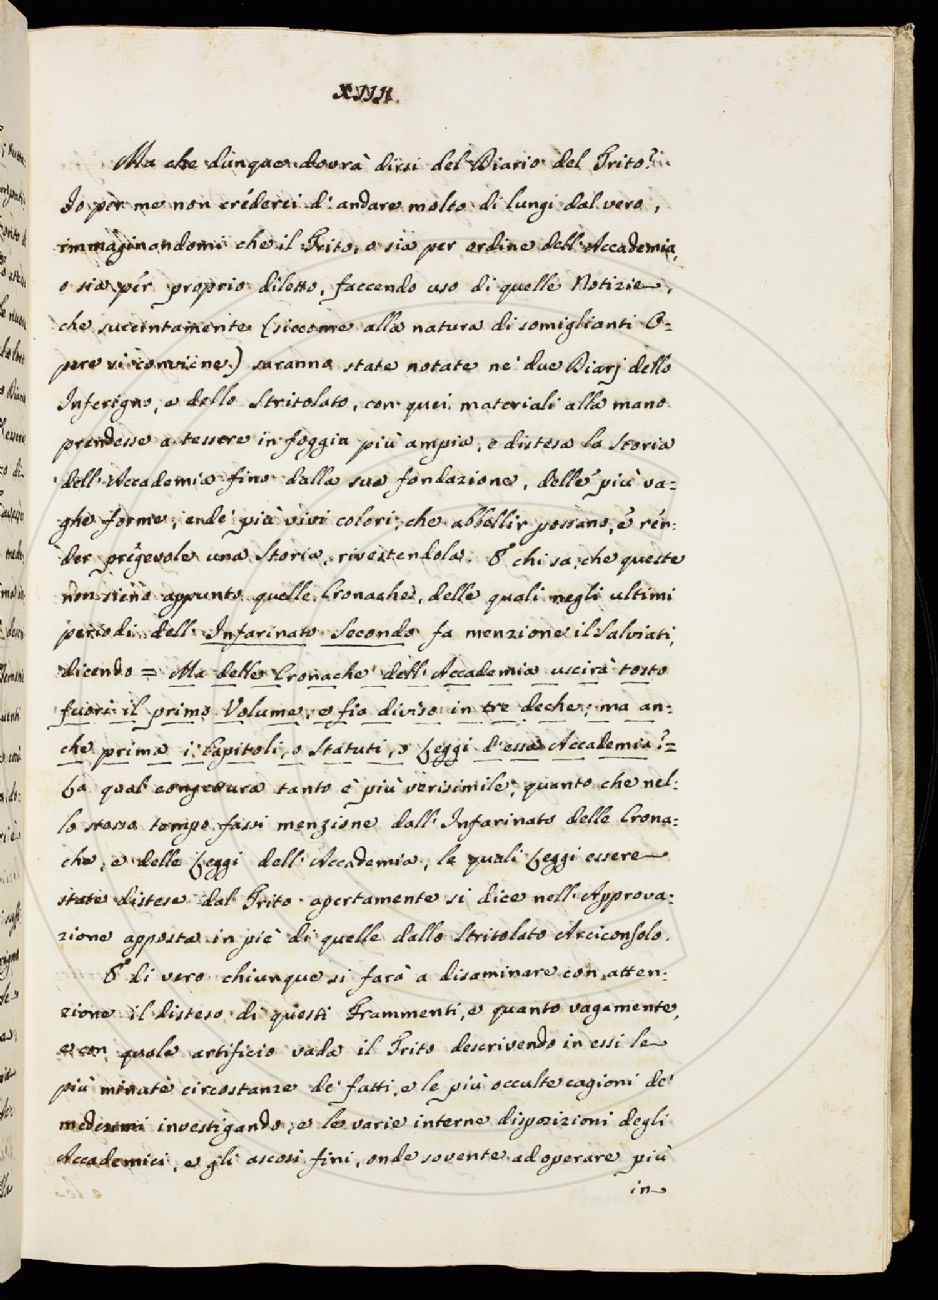 XIII.
Ma che dunque dovrà dirsi del Diario del Trito?
Io per me non crederei d'andare molto di lungi dal vero,
immaginandomi che il Trito, o sia per ordine dell'Accademia,
o sia per proprio diletto, faccendo uso di quelle Notizie,
che succintamente (siccome alla natura di somiglianti O=
pere si conviene) saranno state notate ne' due Diarj dello
Inferigno, e dello Stritolato, con quei materiali alla mano
prendesse a tessere in foggia più ampia, e distesa la Storia
dell'Accademia fino dalla sua fondazione, delle più va=
ghe forme, e nde' più vivi colori, che abbellir possano, e ren=
der pregevole una Storia, rivestendola. E chi sa, che queste
non sieno appunto quelle Cronache, delle quali negli ultimi
periodi dell'Infarinato Secondo fa menzione il Salviati,
dicendo = Ma delle Cronache dell'Accademia uscirà tosto
fuori il primo Volume, e fia diviso in tre deche; ma an=
che prima i Capitoli, o Statuti, o Leggi d'essa Accademia?=
La qual congettura tanto è più verisimile, quanto che nel=
lo stesso tempo fassi menzione dall'Infarinato delle Crona=
che, e delle Leggi dell'Accademia, le quali Leggi essere
state distese dal Trito apertamente si dice nell'Approva=
zione apposta in piè di quelle dallo Stritolato Arciconsolo.
E di vero chiunque si farà a disaminare con atten=
zione il disteso di questi Frammenti, e quanto vagamente,
e con quale artificio vada il Trito descrivendo in essi le
più minate circostanze de' fatti, e le più occulte cagioni de'
medesimi investigando, e le varie interne disposizioni degli
Accademici, e gli ascosi fini, onde sovente ad operare più
in